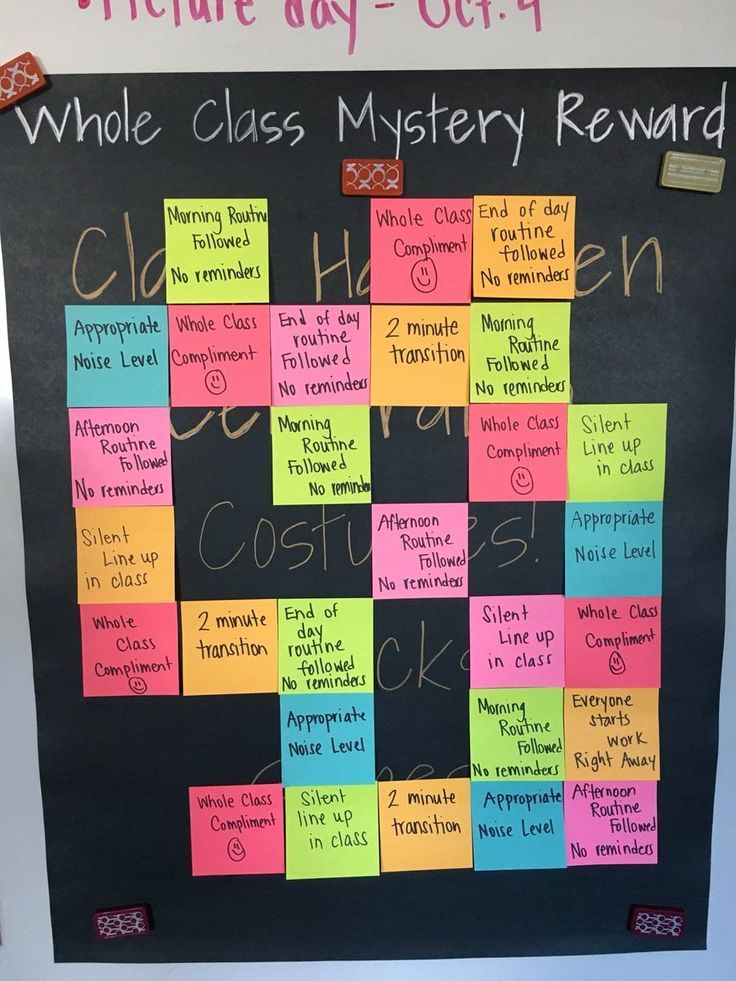 •Picture day - Oct.
Whole Class Mystery Reward
Morning Routine
Followed
No reminders
Whole Class
Compliment
End of day
routine
followed
No reminders
Appropriate
Noise Level
Whole Class
Compliment
End of day
routine
Followed
No reminders
2 minute
transition
Morning
Routine
Followed
No reminders
Afternoon
Routine
Followed
No reminders
Morning
Routine
Followed
No reminders
Whole Class
Compliment
Silent
Line up
in class
Silent
Line up
in class
Afternoon
Routine
Followed
No reminders
Appropriate
Noise Level
Whole
Class
Compliment
2 minute
transition
End of
day
routine
followed
No reminders
Silent
Line up
in class
Whole Class
Compliment
Appropriate
Noise Level
Morning
Routine
Followed
No reminders
Everyone
starts
work
Right Away
Whole Class
Compliment
Silent
line up
in class
2 minute
transition
Appropriate
Noise Level
Afternoon
Routine
Followed
No reminders